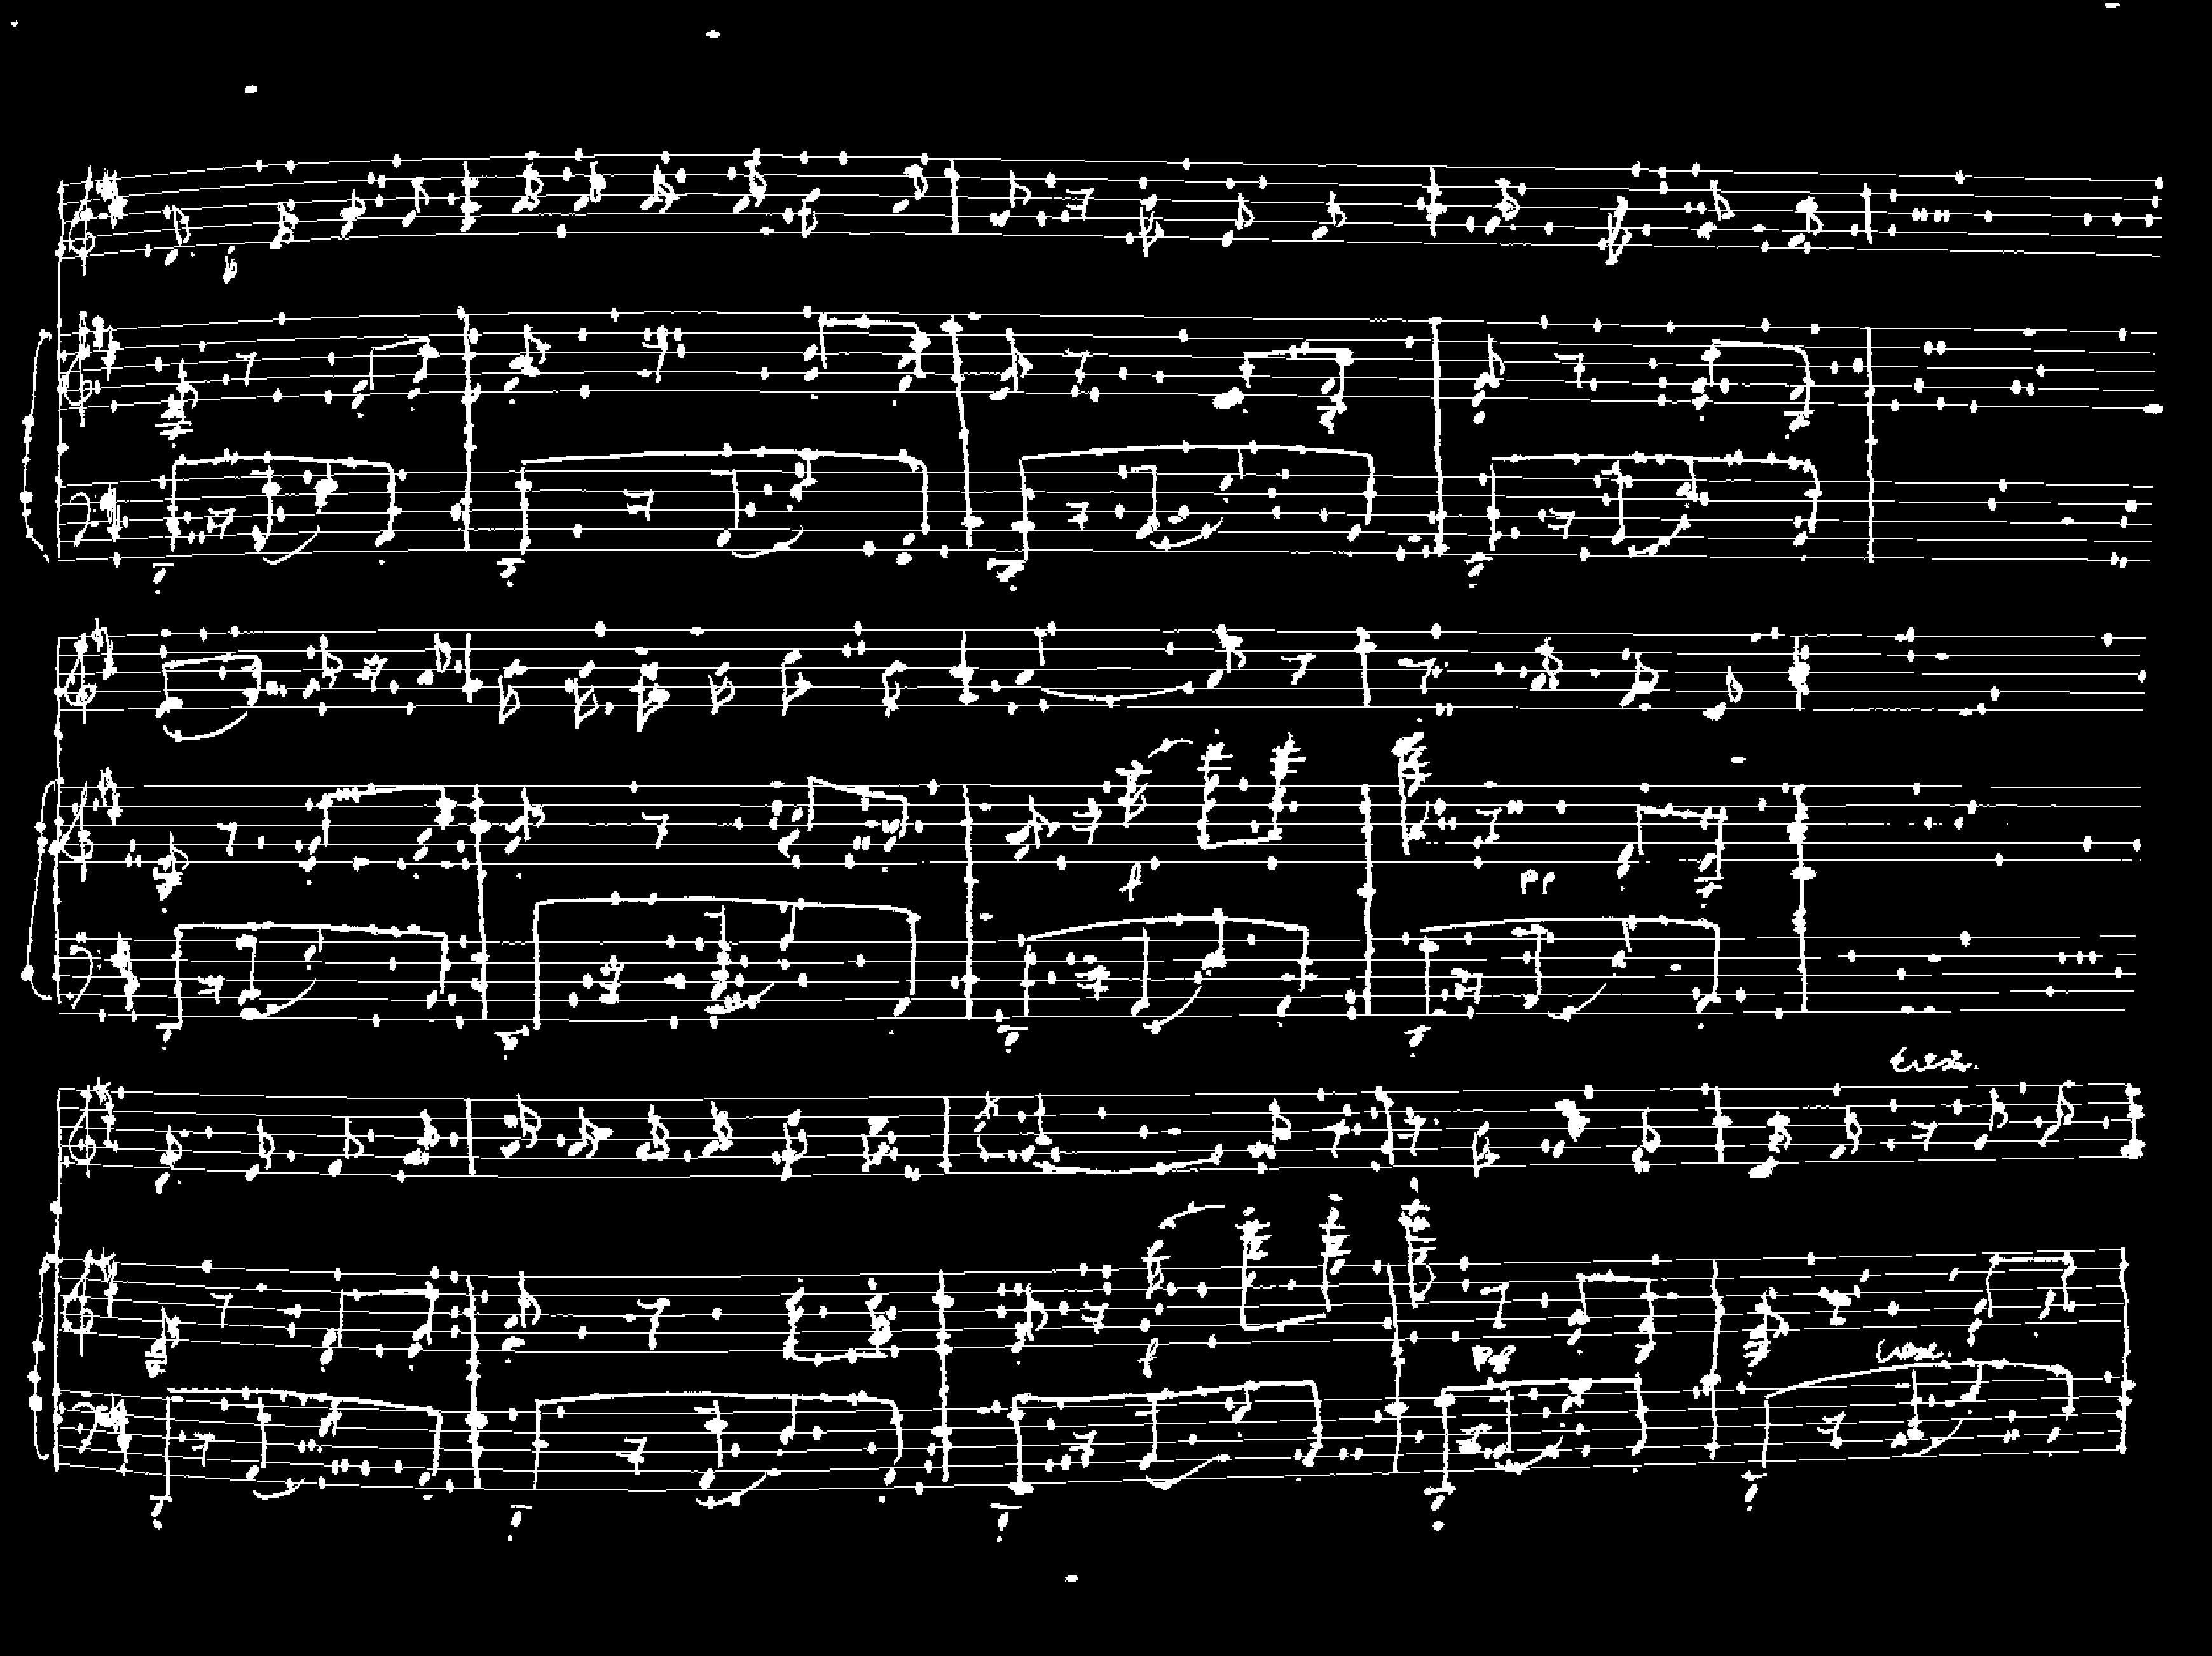 f
pp
cresc.
f
cresc.